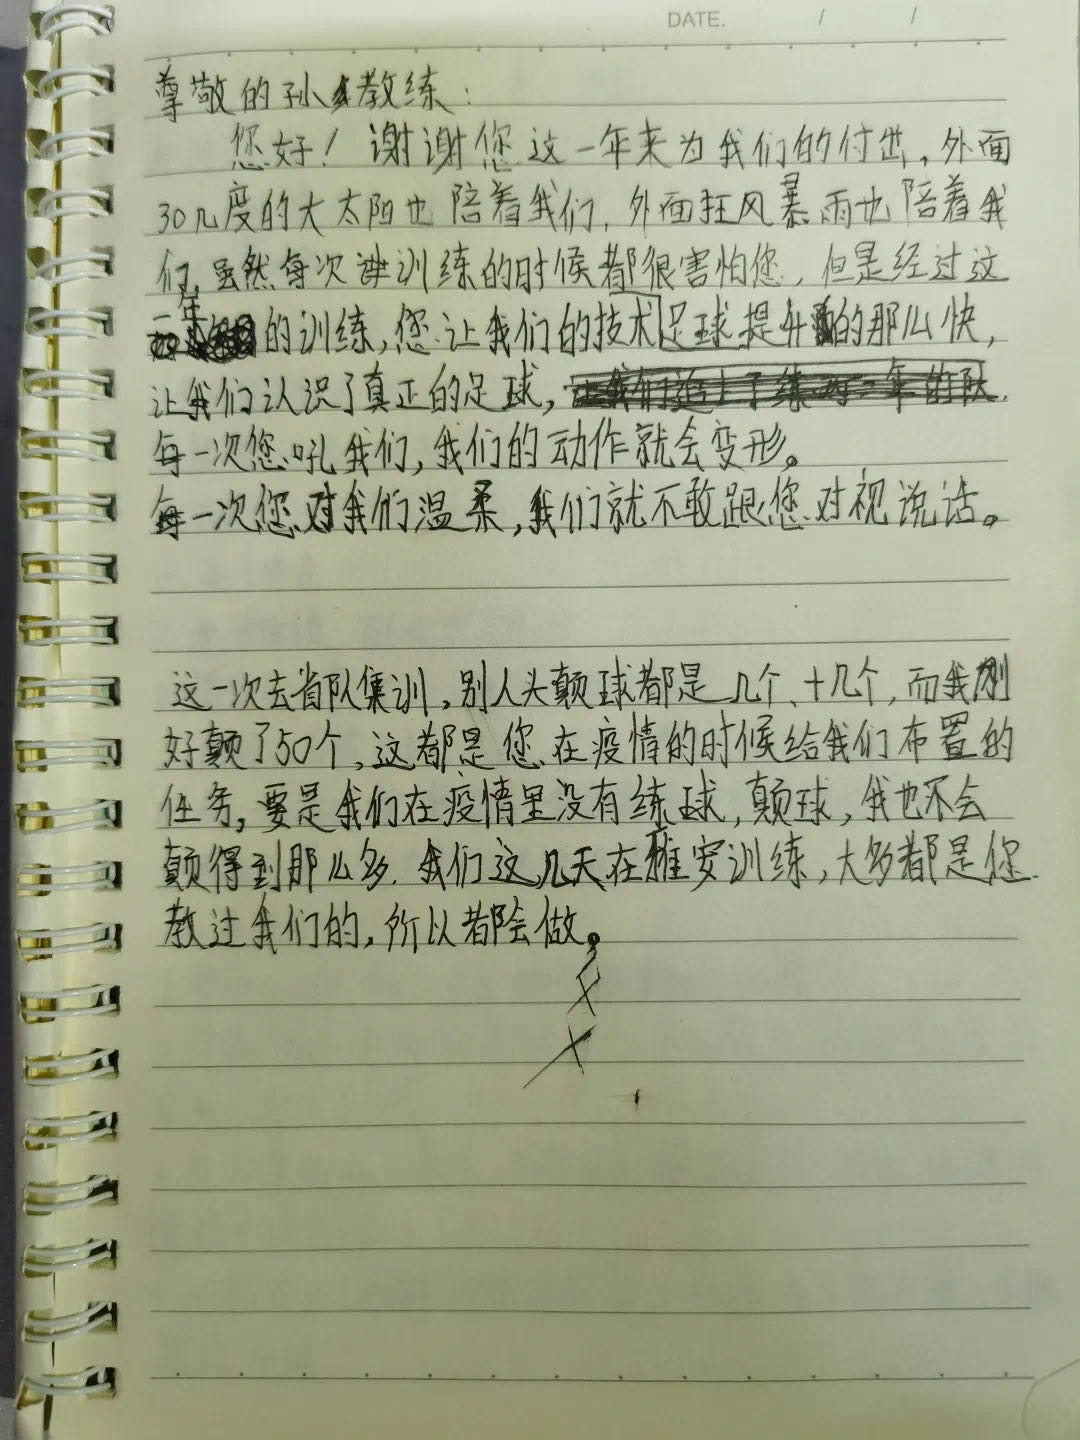 DATE. / /
尊敬的孙教练:
您好!谢谢您这一年来为我们的付出,外面
30几度的大太阳也陪着我们,外面狂风暴雨也陪着我
们,虽然每次训练的时候都很害怕您,但是经过这
一年的训练,您让我们的技术足球提升的那么快,
让我们认识了真正的足球,让我们追上了练了二年的队
每一次您吼我们,我们的动作就会变形。
每一次您对我们温柔,我们就不敢跟您对视说话。
这一次去省队集训,别人头颠球都是几个、十几个,而我刚
好颠了50个,这都是您在疫情的时候给我们布置的
任务,要是我们在疫情里没有练球,颠球,我也不会
颠得到那么多.我们这几天在雅安训练,大多都是您
教过我们的,所以都会做。